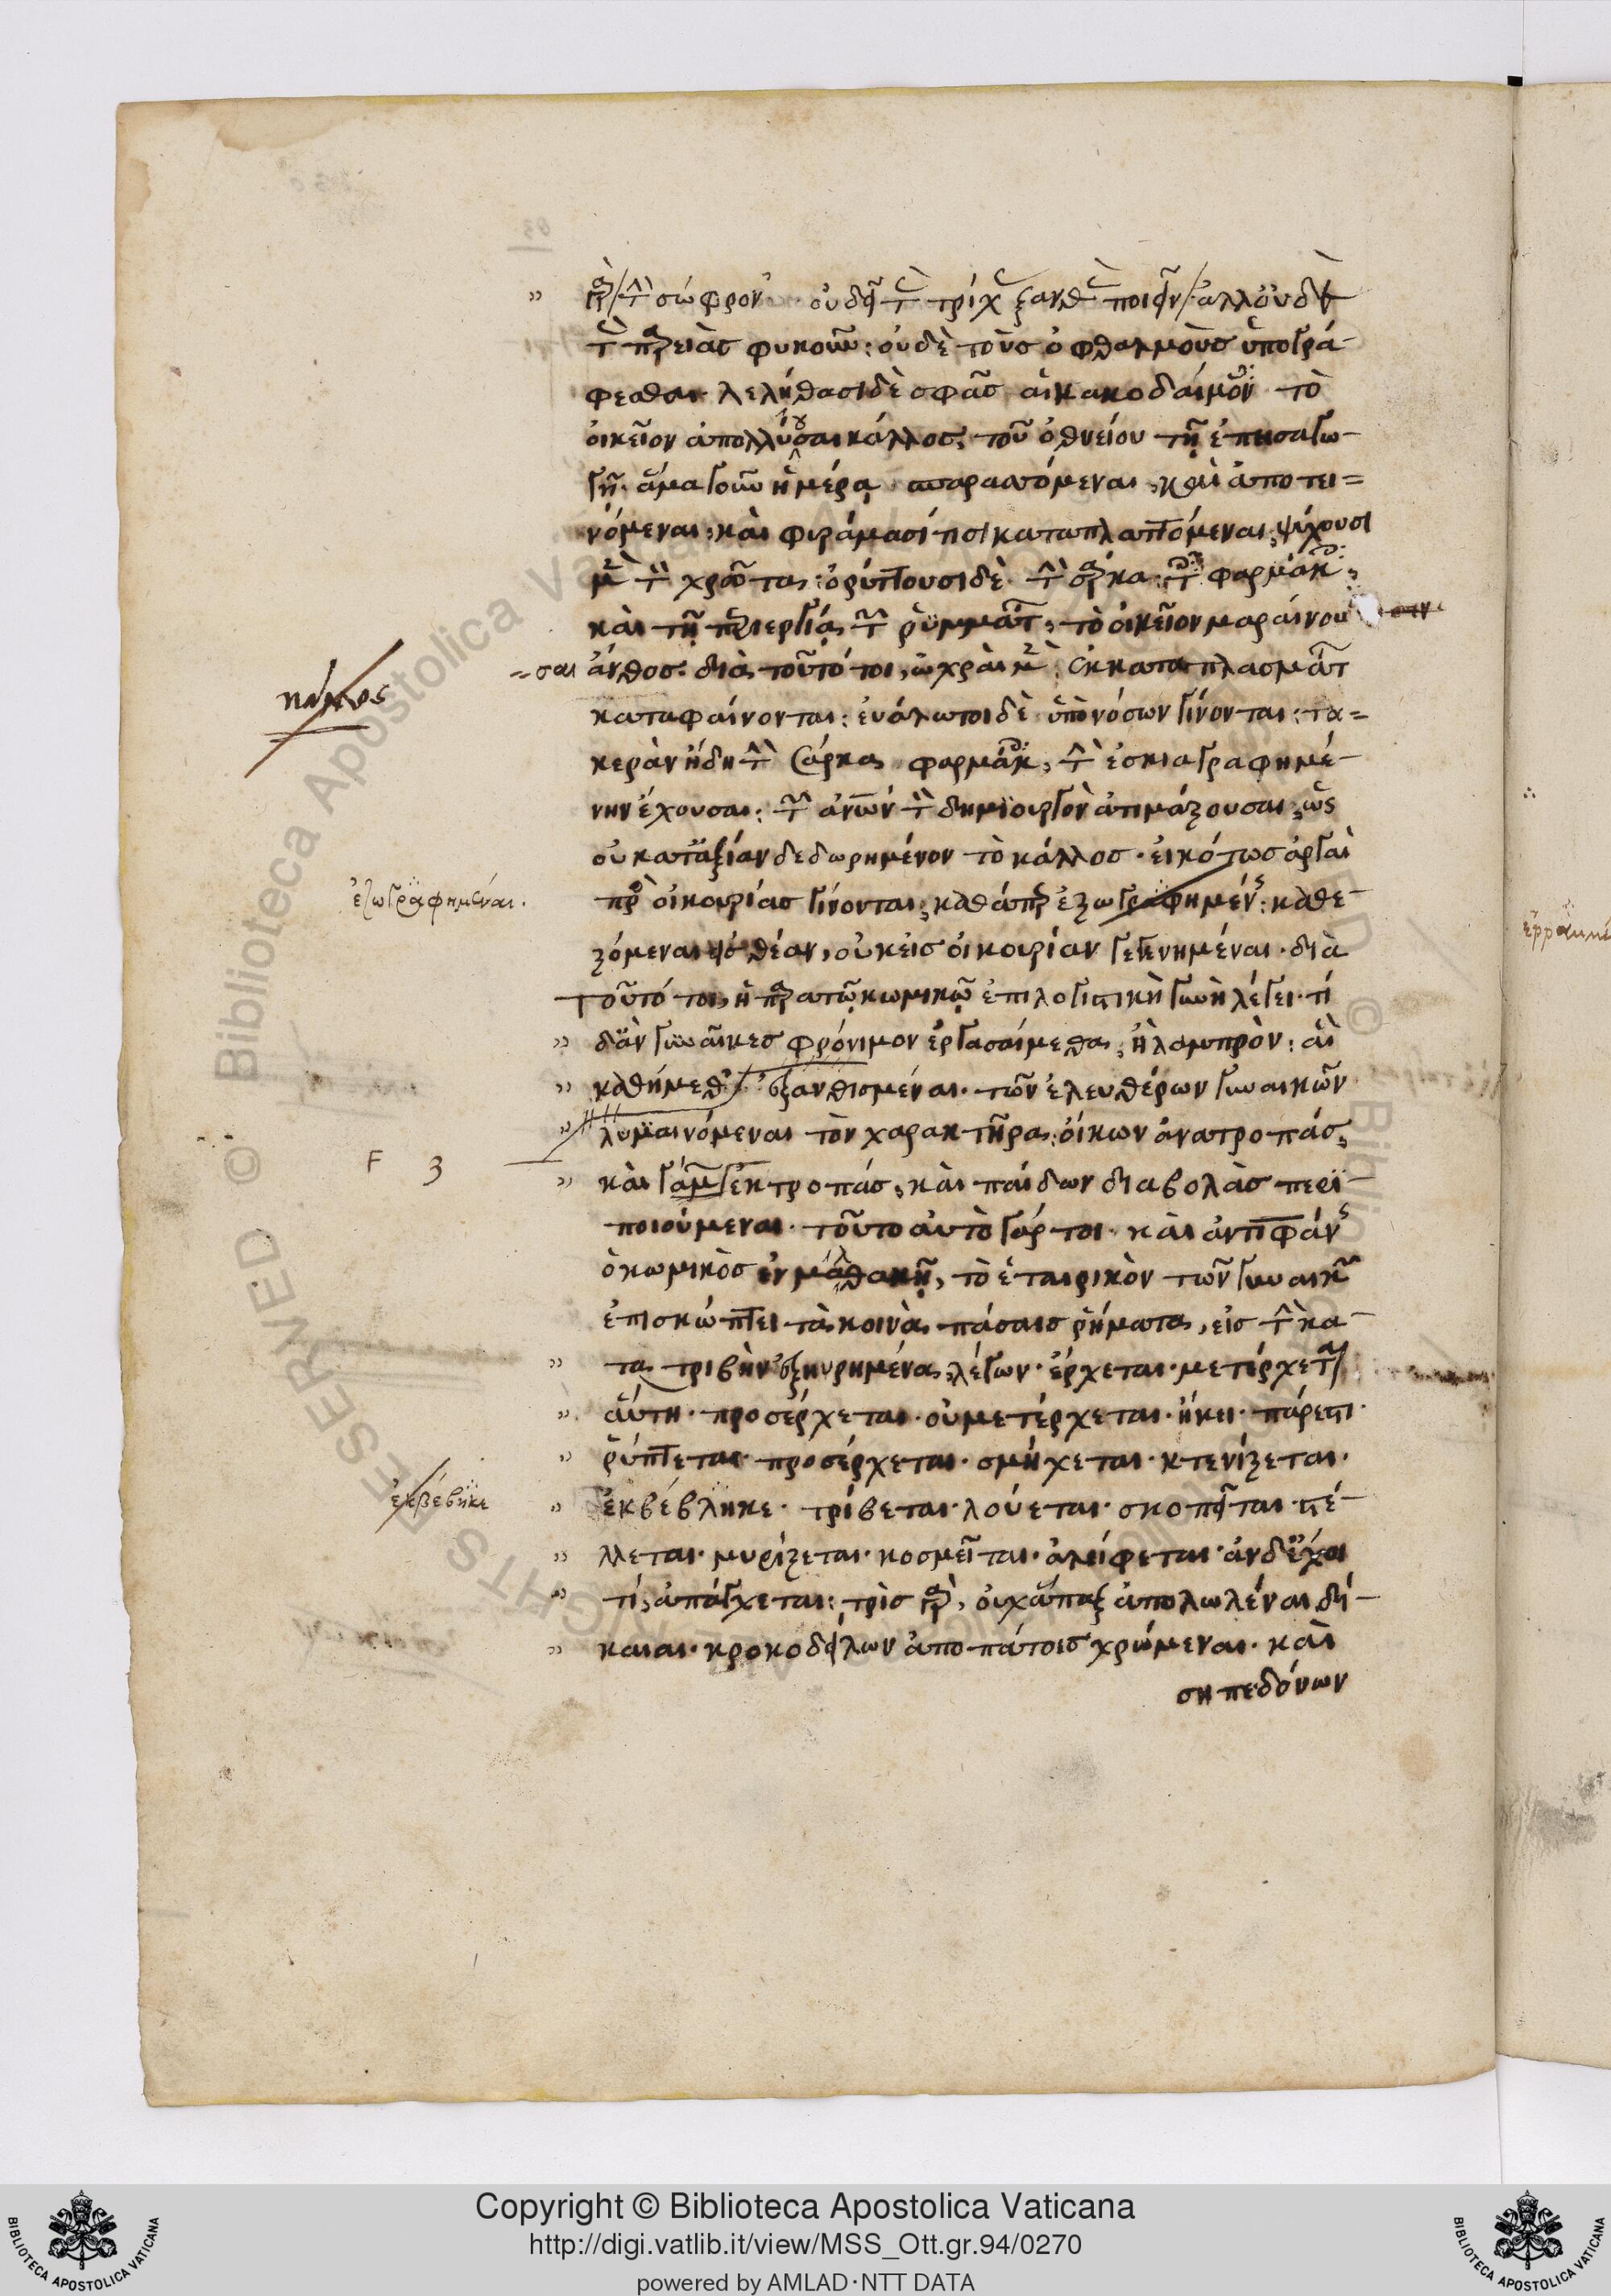 γὰρ τὴν σώφρον' οὐ δεῖ τὰς τρίχας ξανθὰς ποιεῖν· ἀλλ' οὐδὲ
τὰς παρειὰς φυκοῦν: οὐδὲ τοὺς ὀφθαλμοὺς ὑπογρά-
φεσθαι· λελήθασι δὲ σφᾶς αἱ κακοδαίμονες τὸ
οἰκεῖον ἀπολλύουσαι κάλλος, τοῦ ὀθνείου τῇ ἐπεισαγω-
γῇ. ἅμα γοῦν ἡμέρᾳ παραπτόμεναι, καὶ ἀποτει=
νόμεναι, καὶ φυράμασί τισι καταπλαττόμεναι, ψύχουσι
μὲν τὸν χρῶτα: ὀρύττουσι δὲ τὴν σάρκα: τοῖς φαρμάκοις,
καὶ τῇ περιεργίᾳ τῶν ῥυμμάτων, τὸ οἰκεῖον μαραίνου
=σαι ἄνθος· διὰ τοῦτό τοι, ὠχραὶ μὲν ἐκ καταπλασμάτων
καταφαίνονται: εὐάλωτοι δὲ ὑπὸ νόσων γίνονται: τα=
κερὰν ἤδη τὴν σάρκα φαρμάκοις, τὴν ἐσκιαγραφημέ-
νην ἔχουσαι: τῶν ἀνθρώπων τὸν δημιουργὸν ἀτιμάζουσαι, ὡς
οὐ κατ' ἀξίαν δεδωρημένον τὸ κάλλος· εἰκότως ἀργαὶ
πρὸς οἰκουρίας γίνονται, καθάπερ ἐζωγραφημέναι: καθε-
ζόμεναι εἰς θέαν, οὐκ εἰς οἰκουρίαν γεγενημέναι· διὰ
τοῦτό τοι, ἡ παρὰ τῷ κωμικῷ ἐπιλογιστικὴ γυνὴ λέγει· τί
δ' ἂν γυναῖκες φρόνιμον ἐργασαίμεθα, ἢ λαμπρὸν: αἳ
καθήμεθ' ἐξανθισμέναι· τῶν ἐλευθέρων γυναικῶν
λυμαινόμεναι τὸν χαρακτῆρα: οἴκων ἀνατροπάς,
καὶ γάμων ἐκτροπάς, καὶ παίδων διαβολὰς περι-
ποιούμεναι· τοῦτο αὐτὸ γάρ τοι καὶ ἀντιφάνης
ὁ κωμικὸς ἐν μαλθακῇ, τὸ ἑταιρικὸν τῶν γυναικῶν
ἐπισκώπτει τὰ κοινὰ πάσαις ῥήματα, εἰς τὴν κα-
τατριβὴν ἐξηυρημένα, λέγων· ἔρχεται· μετέρχεται
αὕτη· προσέρχεται· οὐ μετέρχεται· ἥκει· πάρεστι·
ῥύπτεται· προσέρχεται· σμήχεται· κτενίζεται·
ἐκβέβληκε· τρίβεται· λούεται· σκοπεῖται· στέ-
λλεται· μυρίζεται· κοσμεῖται· ἀλείφεται· ἂν δ' ἔχοι
τί, ἀπάγχεται: τρὶς γὰρ, οὐχ ἅπαξ ἀπολωλέναι δί-
καιαι· κροκοδείλων ἀποπάτοις χρώμεναι· καὶ
σηπεδόνων
ἐζωγραφημέναι.
F 3
ἐκβέβηκε
Copyright © Biblioteca Apostolica Vaticana
http://digi.vatlib.it/view/MSS_Ott.gr.94/0270
powered by AMLAD·NTT DATA
BIBLIOTECA APOSTOLICA VATICANA
BIBLIOTECA APOSTOLICA VATICANA